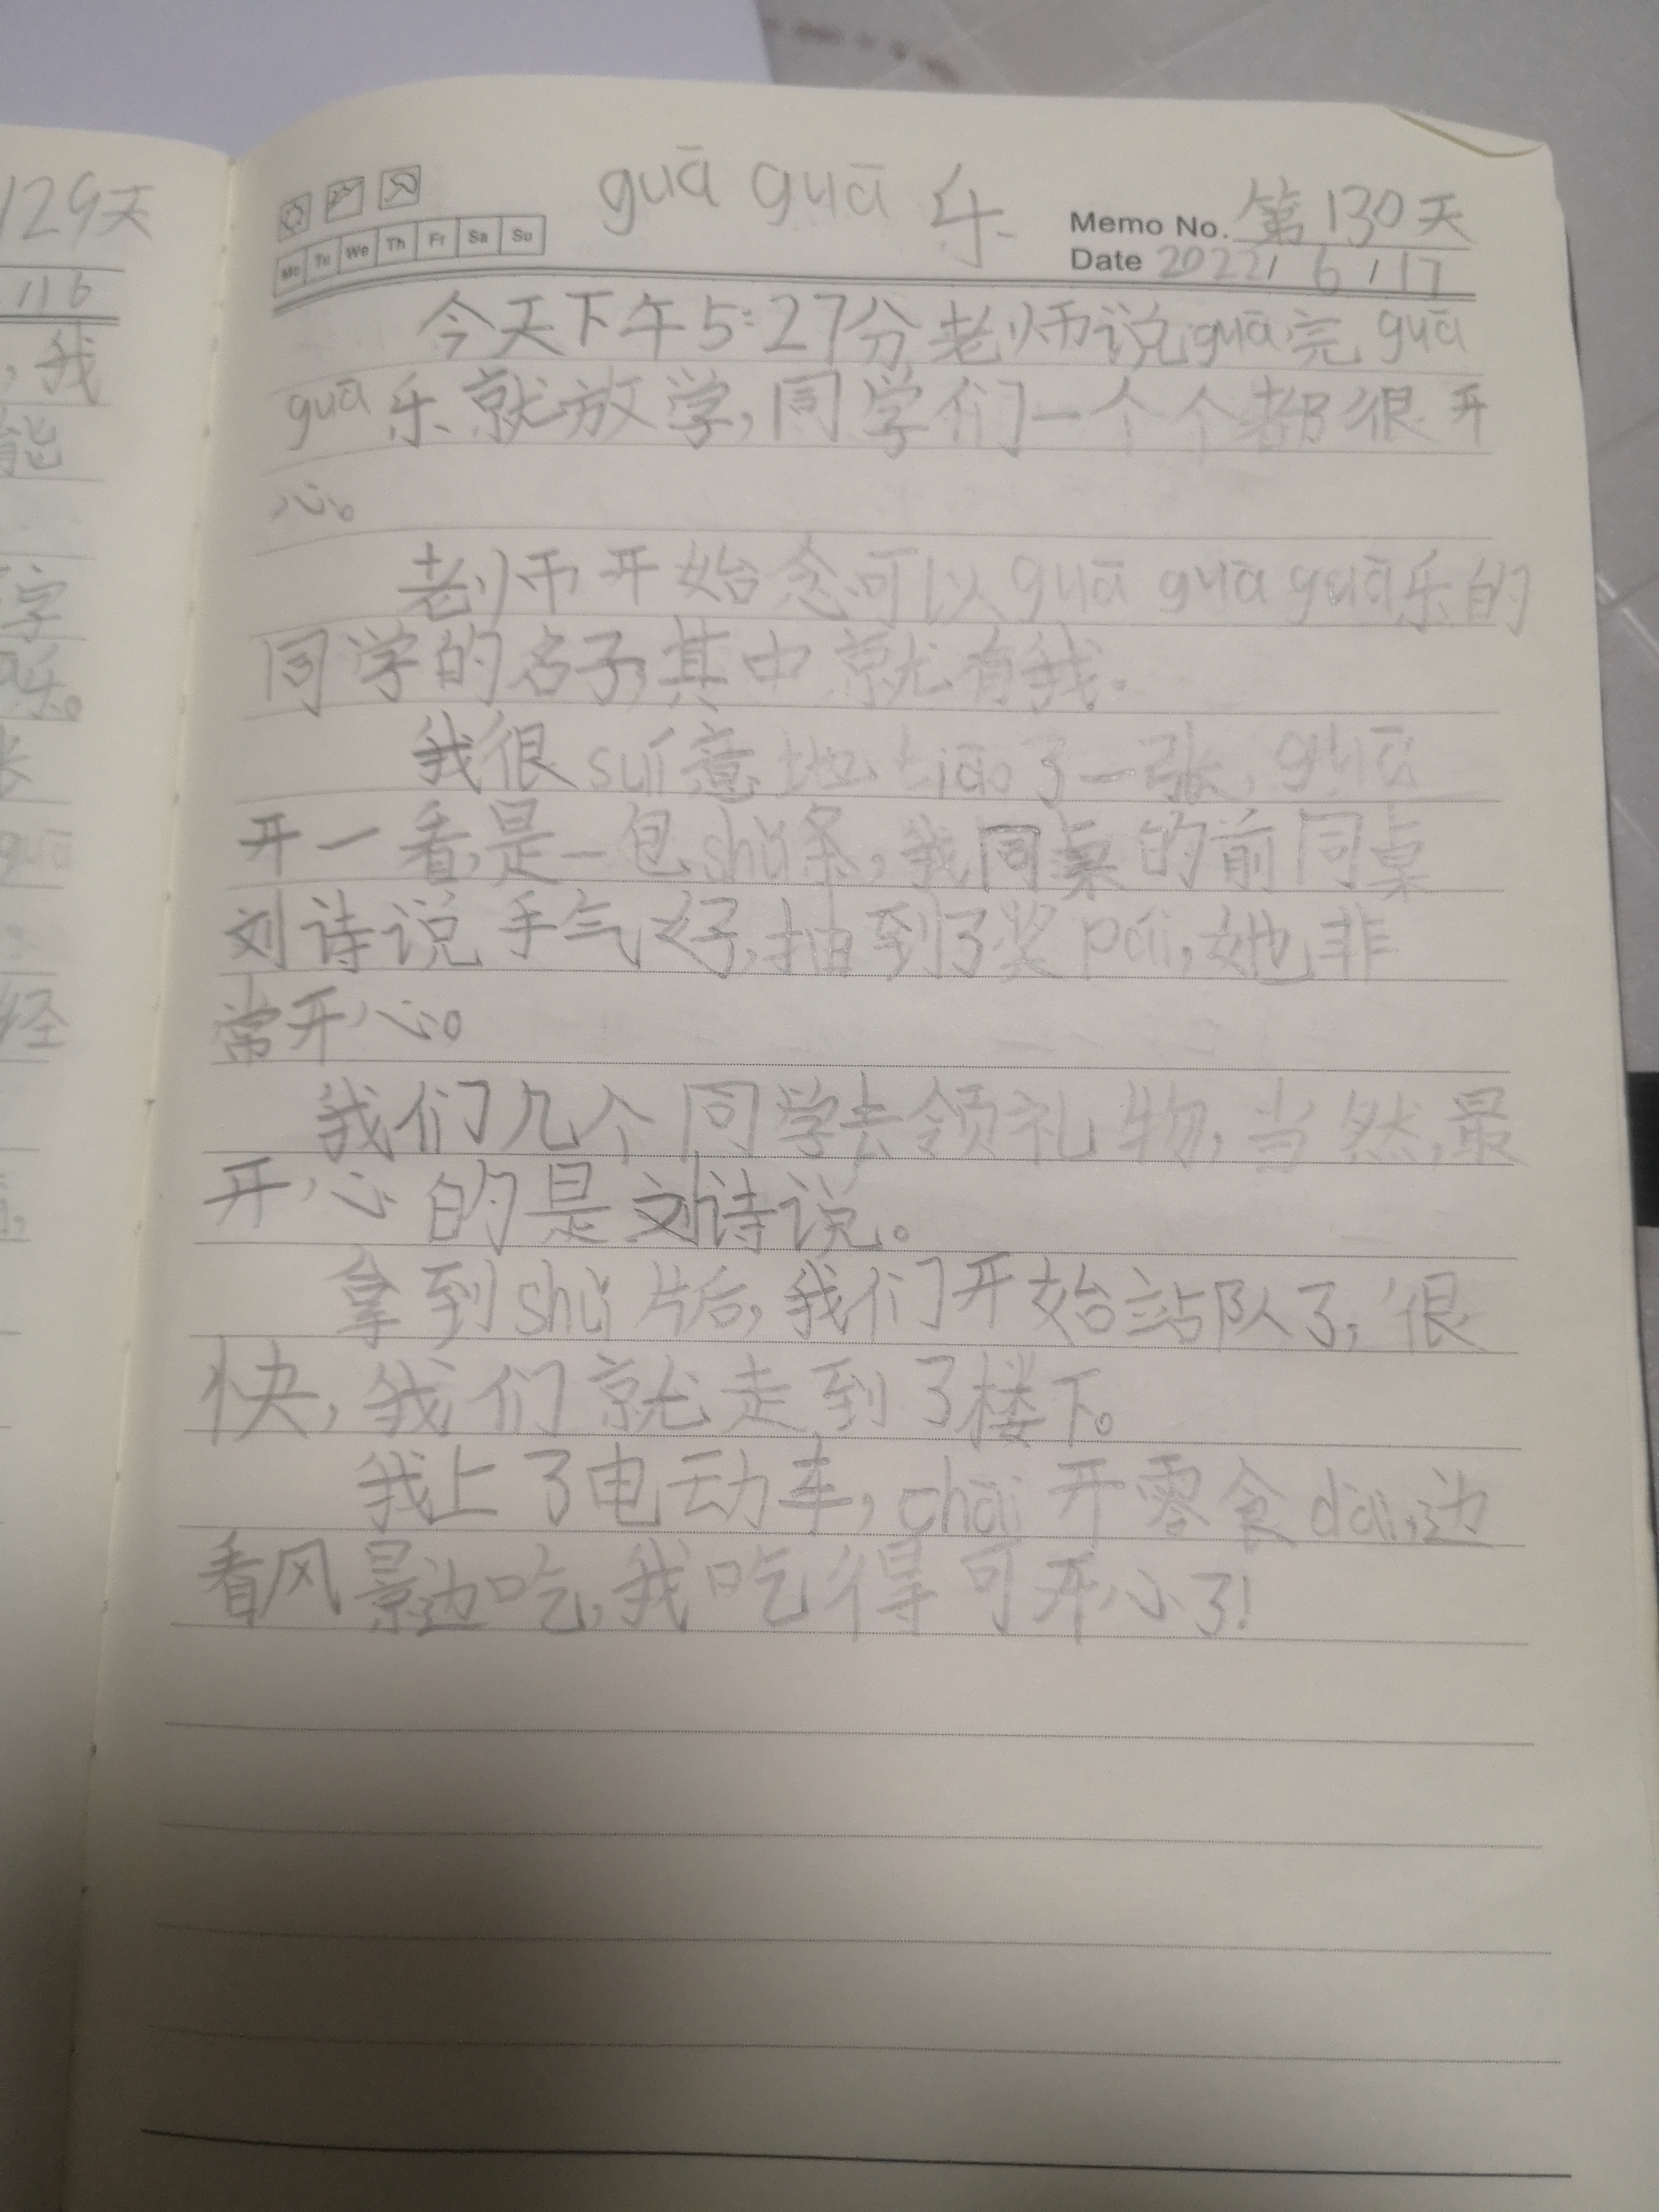 129天
116
,我
能
字
乐。
长
guā
经
guā guā 乐
Memo No. 第130天
Mo Tu We Th Fr Sa Su
Date 2022/6/17
今天下午5:27分老师说guā完guā
guā乐就放学,同学们一个个都很开
心。
老师开始念可以guā guā guā乐的
同学的名子,其中就有我。
我很suí意地tiāo了一张,guā
开一看,是一包shǔ条,我同桌的前同桌
刘诗说手气好,抽到了奖pái,她非
常开心。
我们几个同学去领礼物,当然,最
开心的是刘诗说。
拿到shǔ片后,我们开始站队了,很
快,我们就走到了楼下。
我上了电动车,chāi开零食dài,边
看风景边吃,我吃得可开心了!